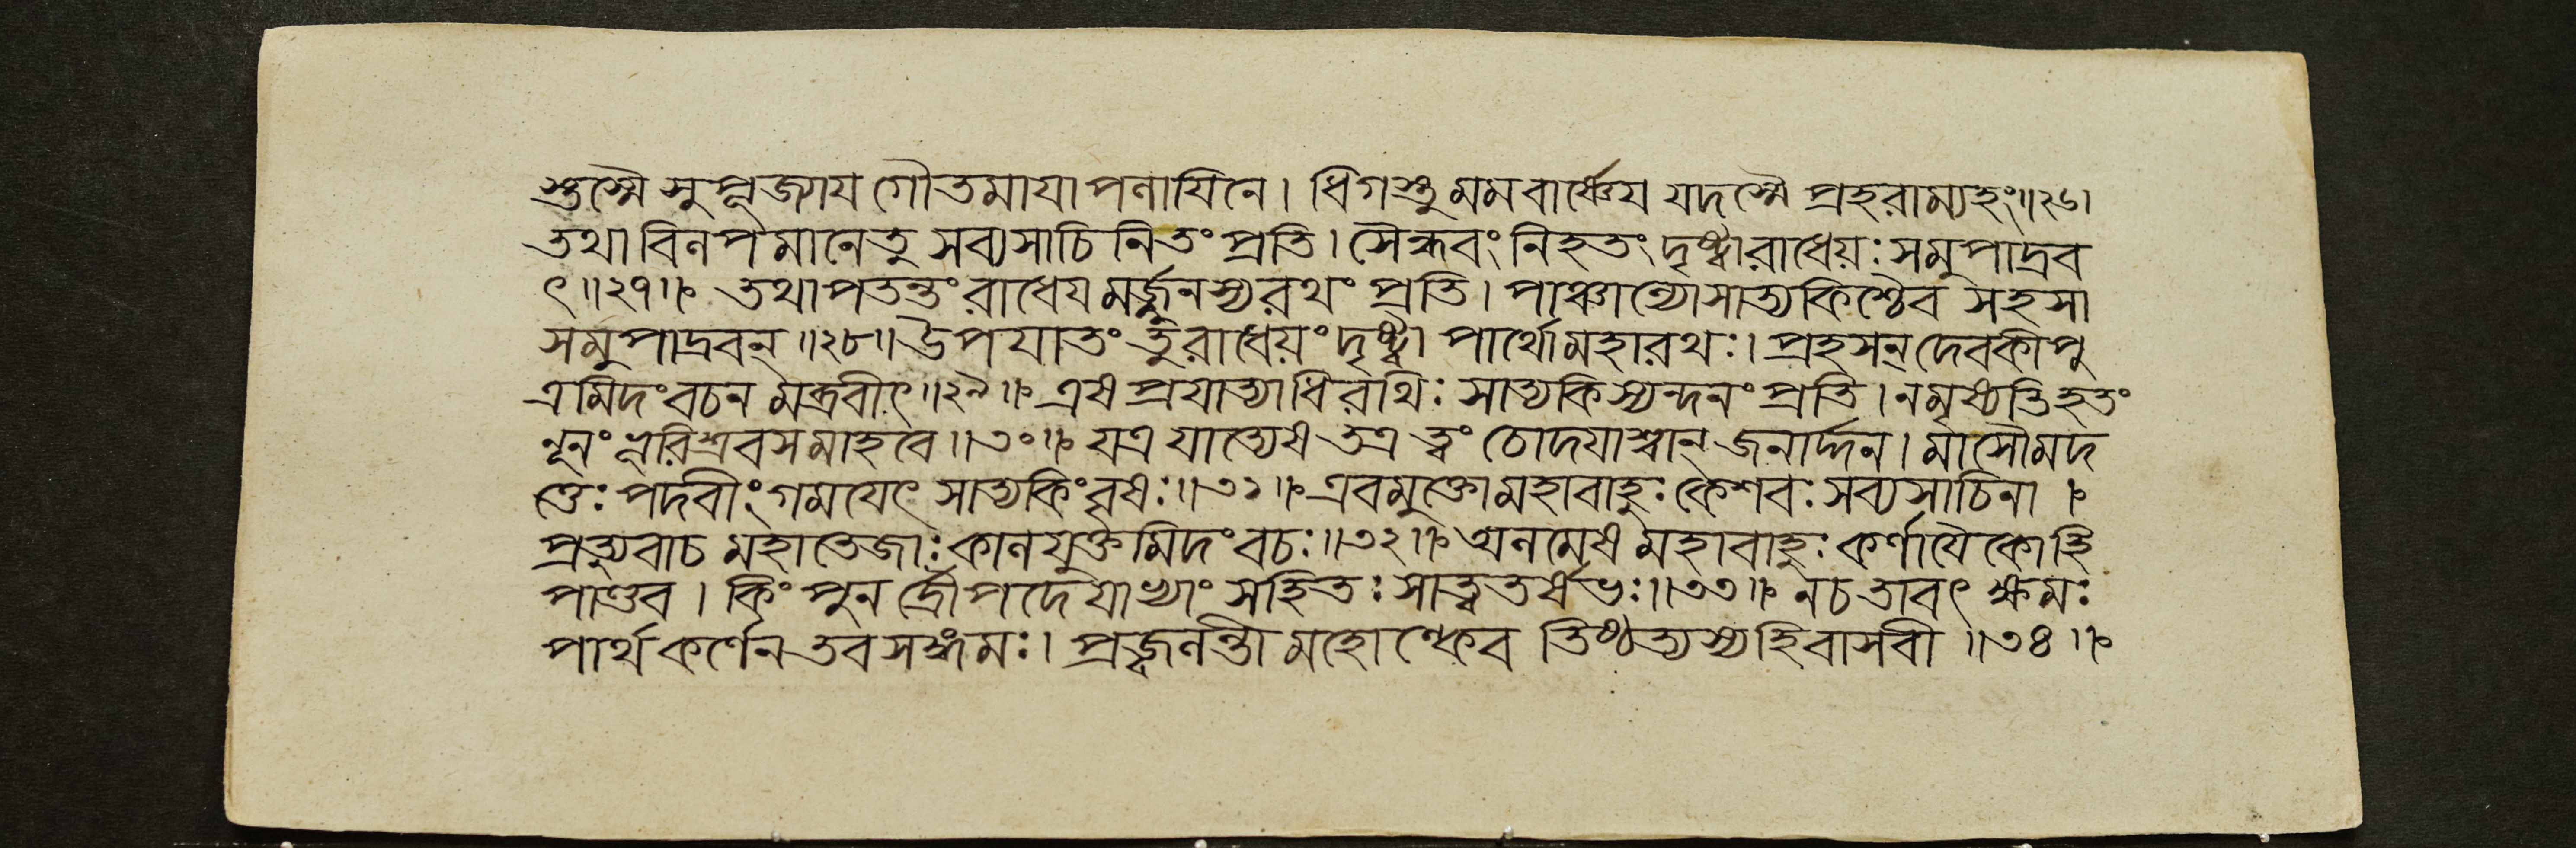 স্তস্মৈ সুপূজ্যায গৌতমাযাপলাযিনে। ধিগস্তু মম বার্ষ্ণেয যদস্মৈ প্রহরাম্যহং॥২৬।
তথা বিলপমানে তু সব্যসাচিনি তং প্রতি। সৈন্ধবং নিহতং দৃষ্ট্বা রাধেয়ঃ সমুপাদ্রব
ৎ॥২৭॥ তথাপতন্তং রাধেযমর্জ্জুনস্য রথং প্রতি। পাঞ্চাল্যো সাত্যকিশ্চৈব সহসা
সমুপাদ্রবন্॥২৮॥ উপযাতং তু রাধেয়ং দৃষ্ট্বা পার্থো মহারথঃ। প্রহসন্ দেবকীপু
ত্রমিদং বচনমব্রবীৎ॥২৯॥ এষ প্রযাত্যাধিরথিঃ সাত্যকিস্যন্দনং প্রতি। ন মৃষ্যতি হতং
নূনং ভূরিশ্রবসমাহবে॥৩০॥ যত্র যাত্যেষ তত্র ত্বং চোদযাশ্বান্ জনার্দ্দন। মা সৌমদ
ত্তেঃ পদবীং গমযেৎ সাত্যকিং বৃষঃ॥৩১॥ এবমুক্তো মহাবাহুঃ কেশবঃ সব্যসাচিনা
প্রত্যুবাচ মহাতেজাঃ কালযুক্তমিদং বচঃ॥৩২॥ অলমেষ মহাবাহুঃ কর্ণাযৈকো হি
পাণ্ডব। কিং পুনর্দ্রৌপদেযাভ্যাং সহিতঃ সাত্বতর্ষভঃ॥৩৩॥ ন চ তাবৎ ক্ষমঃ
পার্থ কর্ণেন তব সঙ্গমঃ। প্রজ্বলন্তী মহোল্কেব তিষ্ঠত্যস্য হি বাসবী॥৩৪॥